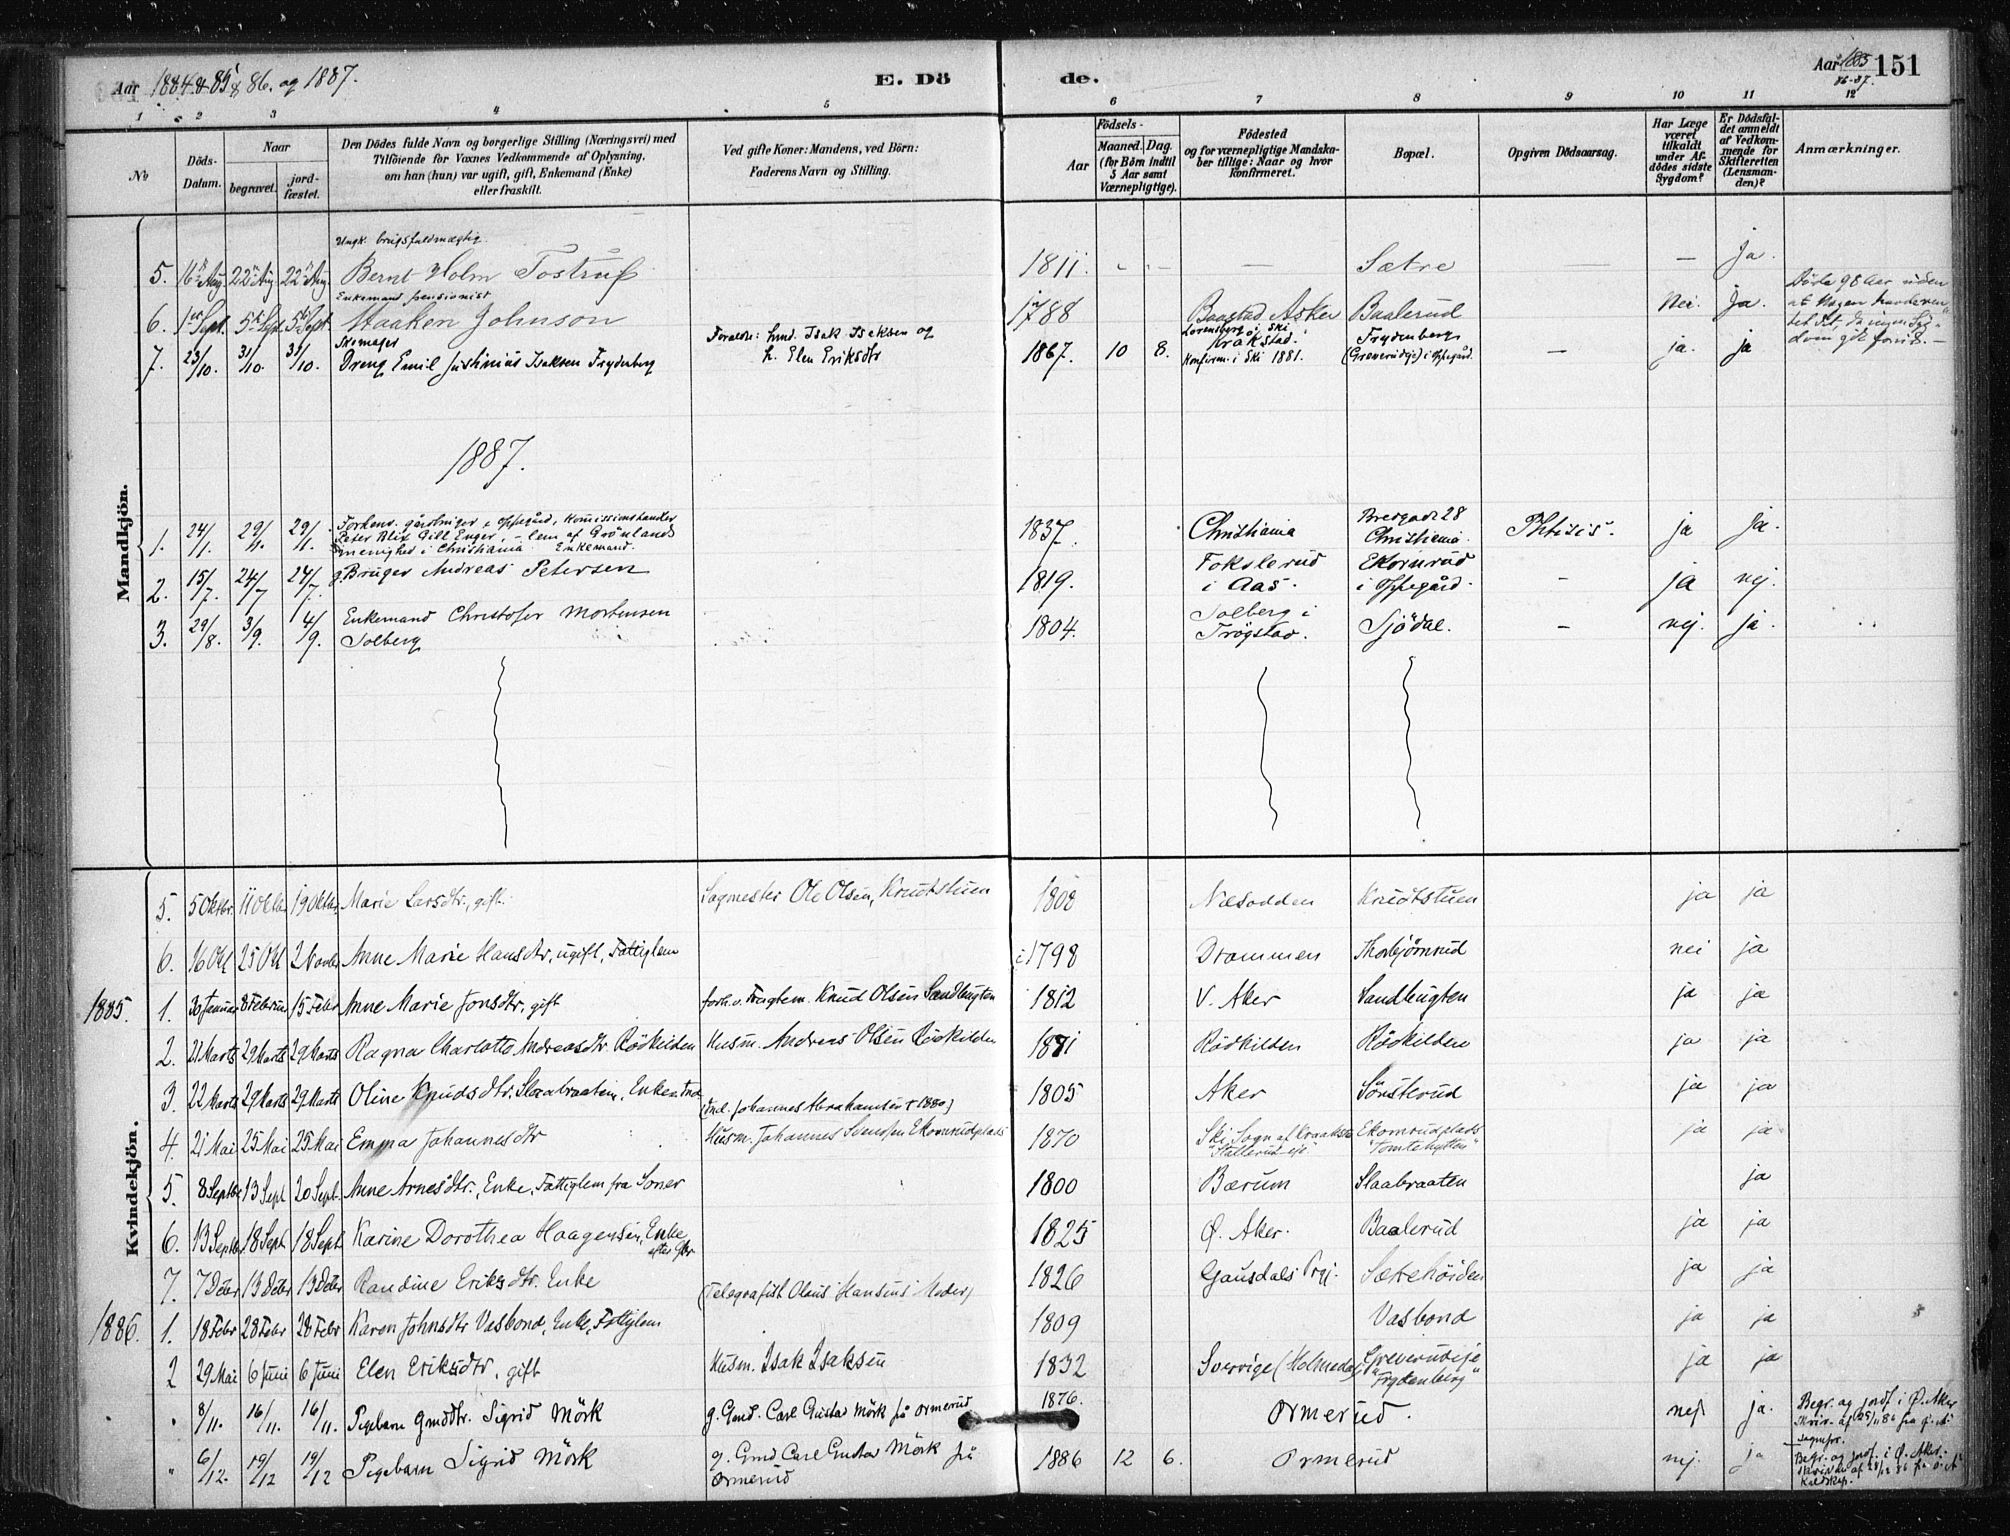 Aar 1884 & 85 & 86. og 1887.
E. Dö
de.
Aar 1885
86-87.
151
1 2 3 4 5 6 7 8 9 10 11 12
No
Döds-Datum.
Naar
begravet.
jordfæstet.
Den Dödes fulde Navn og borgerlige Stilling (Næringsvei) med
Tilföiende for Voxnes Vedkommende af Oplysning,
om han (hun) var ugift, gift, Enkemand (Enke)
eller fraskilt.
Ved gifte Koner: Mandens, ved Börn:
Faderens Navn og Stilling.
Aar
Födsels-
Maaned. Dag.
(for Börn indtil
5 Aar samt
Værnepligtige).
Födested
og for værnepligtige Mandskaber tillige: Naar og hvor
konfirmeret.
Bopæl.
Opgiven Dödsaarsag.
Har Læge
været
tilkaldt
under Afdödes sidste
Sygdom?
Er Dödsfaldet anmeldt
af Vedkommende for
Skifteretten
(Lensmanden)?
Anmærkninger.
Mandkjön.
Ungk. brugsfuldmægtig
5. 16 Aug 22 Aug 22 Aug. Bernt Holm Tostrup 1811. - - - Sætre - - Ja.
Enkemand pensionist
6. 1 Sept. 5 Sept 5 Sept. Haaken Johnson 1788 Baastad Asker Baalerud Nei. Ja.
Döde 98 Aar uden
Skomager
7. 23/10. 31/10. 31/10. Dreng Emil Justinius Isaksen Frydenberg
Foraldr: Hmd. Isak Isaksen og
h. Elen Eriksdtr
1867. 10 8.
Lorensberg i Ski
Kråkstad.
Konfirm. i Ski 1881.
Frydenberg
(Greverudeje) i Oppegård.
- ja. ja
1887.
1. 24/1. 29/1. 29/1.
Forhenv. gårdbruger i Oppegård, Kommissionshandler
Peter Blix Gill Enger, - lem af Grönlands
menighed i Christiania. Enkemand.
1837. Christiania
Bredgade 28
Christiania.
Phtisis. ja ja.
2. 15/7. 24/7 24/7. g. Bruger Andreas Petersen 1819.
Fokslerud
i Aas.
Ekornrud
i Oppegård.
- ja nej.
3. 29/8. 3/9. 4/9.
Enkemand Christofer Mortensen
Solberg
1804.
Solberg i
Trögstad.
Sjödal. - nej. ja.
Kvindekjön.
5. 5 Oktbr. 11 Oktbr. 19 Oktbr. Marie Larsdtr., gift. Sagmester Ole Olsen, Knudstuen 1808 Næsodden Knudstuen ja ja
6. 16 Okt 25 Okt 2 Novbr. Anne Marie Hansdtr, ugift, Fattiglem i 1798 Drammen Thorbjörnrud nei ja
1885. 1. 30 Januar 8 Februar 15 Febr Anne Marie Jonsdtr, gift forh. v. Knud Olsen Sandbugten 1812 V. Aker Sandbugten ja ja
2. 21 Marts 29 Marts 29 Marts Ragna Charlotte Andreasdtr Rödkilden Husm. Andreas Olsen Rödkilden 1881 Rödkilden Rödkilden ja ja
3. 22 Marts 29 Marts 29 Marts Oline Knudsdtr. Slaabraaten, Enke
Johannes Abrahamsen + 1880)
1805 Aker Sönsterud ja ja
4. 21 Mai 25 Mai 25 Mai Emma Johannesdtr Husm. Johannes Svensen Ekornrudplads 1870
Ski Sogn af Kraakstad
Stallerudeje
Ekornrudplads
"Tomtehytten"
ja ja
5. 8 Septbr 13 Sept 20 Sept. Anne Arnesdtr., Enke, Fattiglem fra Soner 1800 Bærum Slaabraaten ja
6. 13 Septbr 18 Sept 18 Sept. Karine Dorothea Haagensen, Enke
1825 Ø. Aker. Baalerud ja ja
7. 7 Debr 13 Debr 13 Debr Randine Eriksdtr. Enke (Telegrafist Olaus Hansens Moder) 1826 Gausdals Prgj. Sætrehöiden ja ja
1886. 1. 18 Febr 28 Febr 28 Febr Karen Johnsdtr Vasbond, Enke, Fattiglem 1809 Vasbond ja ja
2 29 Mai 6 Juni 6 Juni Elen Eriksdtr. gift Husm. Isak Isaksen 1832 Sverrige (Holmedal)
Greverudeje
"Frydenberg"
ja ja
" 8/11. 16/11. 16/11. Pigebarn Gmddtr. Sigrid Mörk g. Gmd. Carl Gustav Mörk på Ormerud 1876. Ormerud. nej. ja.
Begr. og jordf. i Ø. Aker
" 6/12. 19/12 19/12 Pigebarn Sigrid Mörk
g. Gmd Carl Gustav Mörk på
Ormerud
1886 12 6. Ormerud nej. ja
Begr. og jordf. i Ø. Aker.